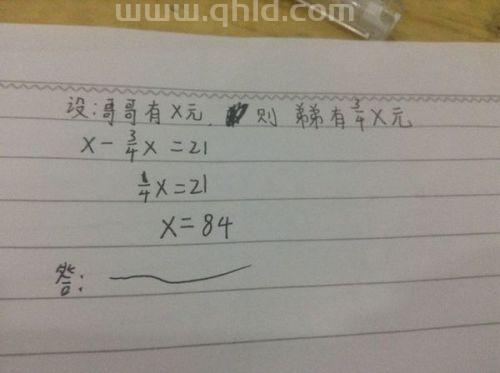 www.qhld.com
设:哥哥有X元, 则 弟弟有3/4X元
X-3/4X=21
1/4X=21
X=84
答: